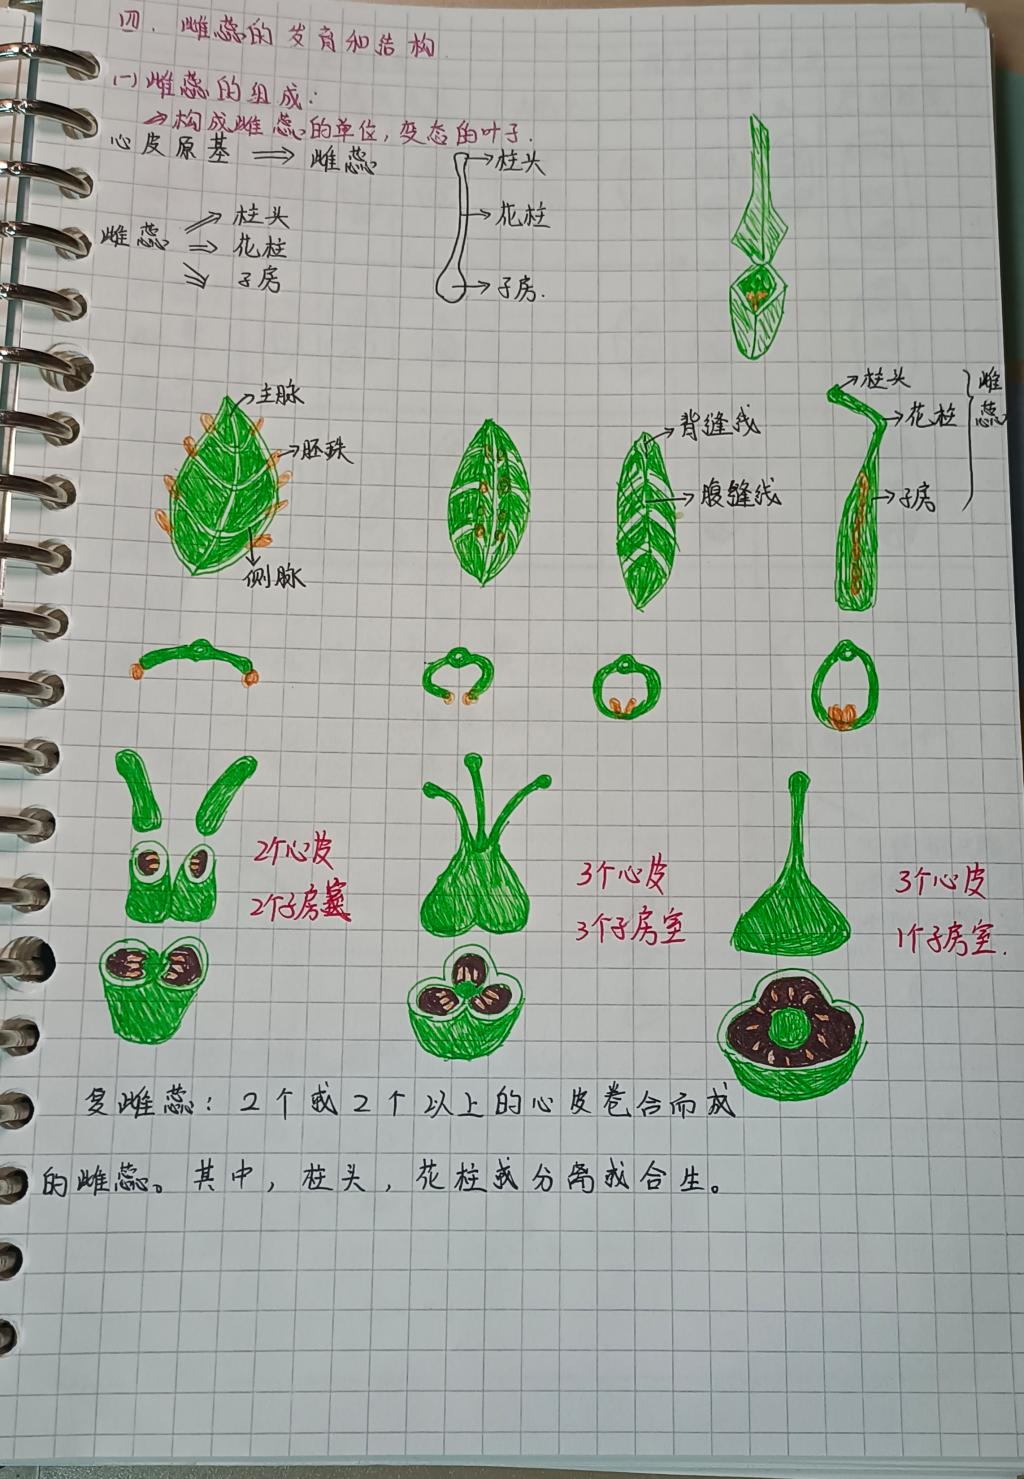 四.雌蕊的发育和结构
(一)雌蕊的组成:
→构成雌蕊的单位,变态的叶子.
心皮原基 ⇒ 雌蕊
柱头
花柱
子房.
雌蕊 ⇒ 柱头
⇒ 花柱
⇒ 子房
主脉
胚珠
侧脉
背缝线
腹缝线
柱头
花柱
子房
雌蕊
2个心皮
2个子房室
3个心皮
3个子房室
3个心皮
1个子房室.
复雌蕊:2个或2个以上的心皮卷合而成
的雌蕊。其中,柱头,花柱或分离或合生。